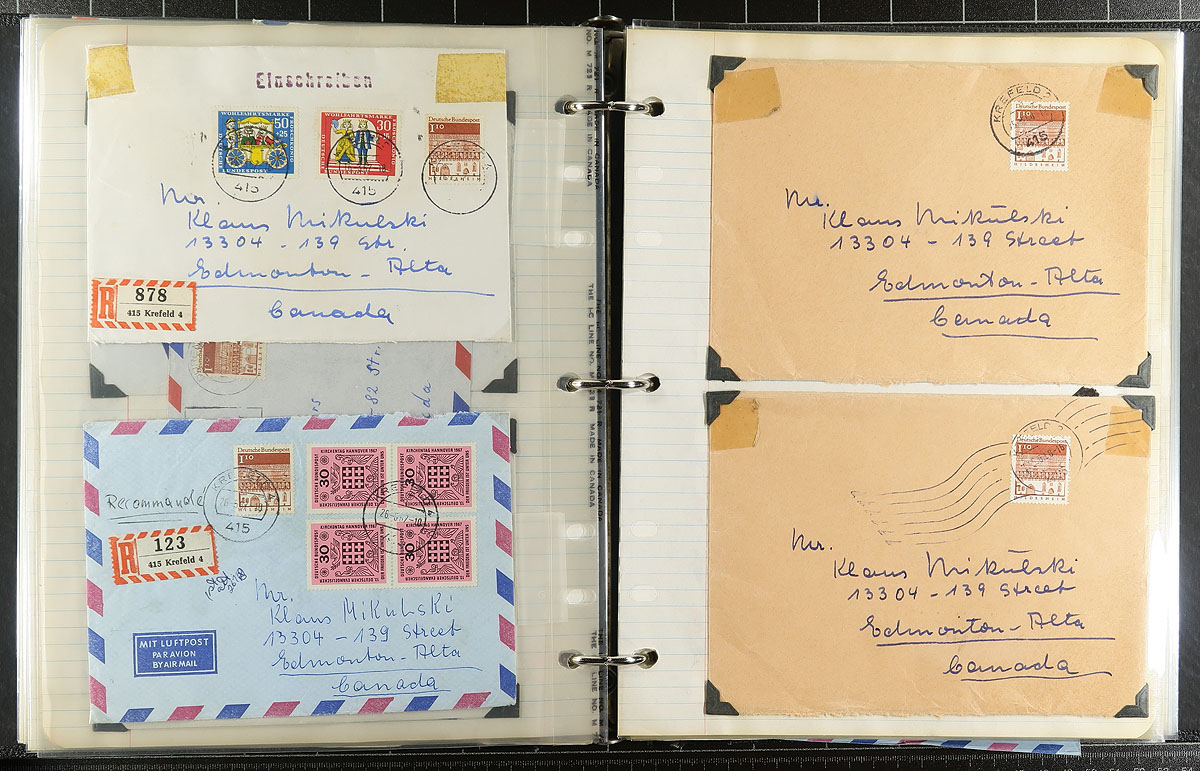 Einschreiben
WOHLFAHRTSMARKE
50
+25
DEUTSCHE BUNDESPOST
WOHLFAHRTSMARKE
30
DEUTSCHE BUNDESPOST
Deutsche Bundespost
1.10
HILDESHEIM
415
415
Mr.
Klaus Mikulski
13304 - 139 Str.
Edmonton - Alta
Canada
R
878
415 Krefeld 4
- 82 Str.
Deutsche Bundespost
1.10
HILDESHEIM
KIRCHENTAG HANNOVER 1967
30
KIRCHENTAG HANNOVER 1967
30
KIRCHENTAG HANNOVER 1967
30
KIRCHENTAG HANNOVER 1967
30
415
Recommandé
R
123
415 Krefeld 4
Mr.
Klaus Mikulski
13304 - 139 Street
Edmonton - Alta
Canada
MIT LUFTPOST
PAR AVION
BY AIR MAIL
THE I-C LINE NO. M 723 R MADE IN CANADA
KREFELD
415
Deutsche Bundespost
1.10
HILDESHEIM
Mr.
Klaus Mikulski
13304 - 139 Street
Edmonton - Alta
Canada
Deutsche Bundespost
1.10
HILDESHEIM
Mr.
Klaus Mikulski
13304 - 139 Street
Edmonton - Alta
Canada